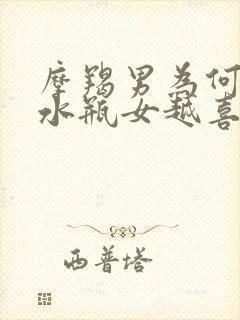 摩羯男为何
水瓶女越喜
西普塔